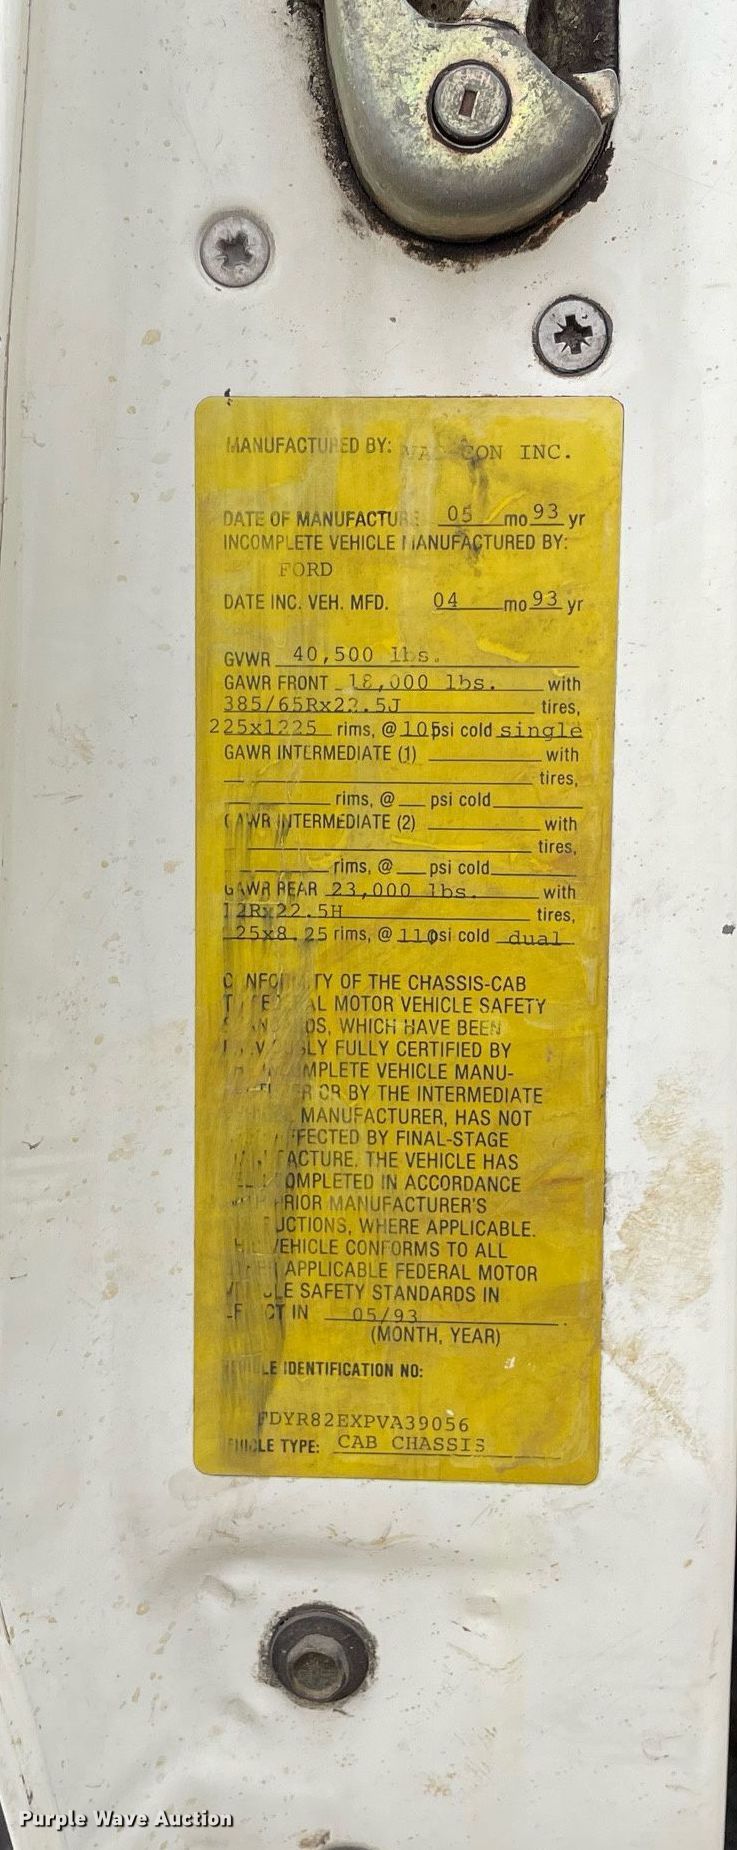 MANUFACTURED BY: VAC-CON INC.
DATE OF MANUFACTURE 05 mo 93 yr
INCOMPLETE VEHICLE MANUFACTURED BY:
FORD
DATE INC. VEH. MFD. 04 mo 93 yr
GVWR 40,500 lbs.
GAWR FRONT 18,000 lbs. with
385/65Rx22.5J tires,
225x1225 rims, @ 105 psi cold single
GAWR INTERMEDIATE (1) with
tires,
rims, @ psi cold
GAWR INTERMEDIATE (2) with
tires,
rims, @ psi cold
GAWR REAR 23,000 lbs. with
12Rx22.5H tires,
25x8.25 rims, @ 110 psi cold dual
CONFORMITY OF THE CHASSIS-CAB
TO FEDERAL MOTOR VEHICLE SAFETY
STANDARDS, WHICH HAVE BEEN
PREVIOUSLY FULLY CERTIFIED BY
THE INCOMPLETE VEHICLE MANU-
FACTURER OR BY THE INTERMEDIATE
VEHICLE MANUFACTURER, HAS NOT
BEEN AFFECTED BY FINAL-STAGE
MANUFACTURE. THE VEHICLE HAS
BEEN COMPLETED IN ACCORDANCE
WITH PRIOR MANUFACTURER'S
INSTRUCTIONS, WHERE APPLICABLE.
THIS VEHICLE CONFORMS TO ALL
OTHER APPLICABLE FEDERAL MOTOR
VEHICLE SAFETY STANDARDS IN
EFFECT IN 05/93
(MONTH, YEAR)
VEHICLE IDENTIFICATION NO:
FDYR82EXPVA39056
VEHICLE TYPE: CAB CHASSIS
Purple Wave Auction